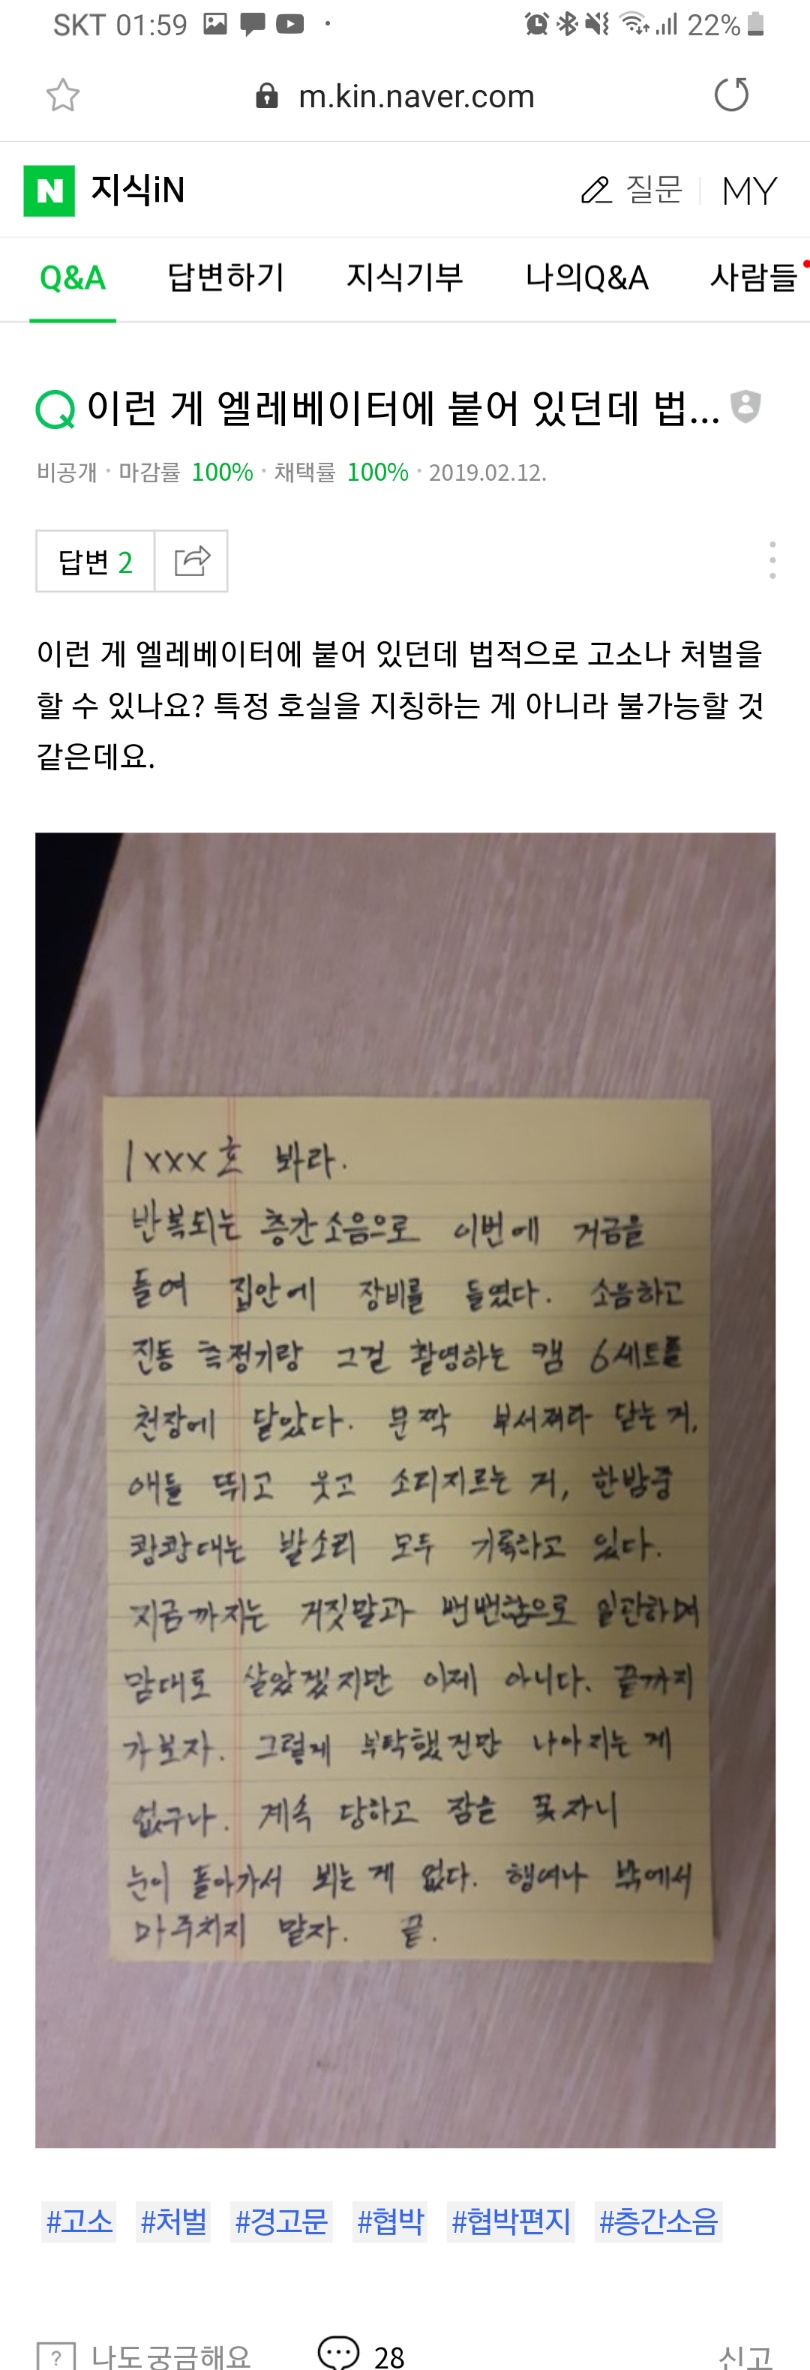 SKT 01:59 22%
m.kin.naver.com
N 지식iN 질문 MY
Q&A 답변하기 지식기부 나의Q&A 사람들
Q 이런 게 엘레베이터에 붙어 있던데 법...
비공개 · 마감률 100% · 채택률 100% · 2019.02.12.
답변 2
이런 게 엘레베이터에 붙어 있던데 법적으로 고소나 처벌을
할 수 있나요? 특정 호실을 지칭하는 게 아니라 불가능할 것
같은데요.
1xxx호 봐라.
반복되는 층간소음으로 이번에 거금을
들여 집안에 장비를 들였다. 소음하고
진동 측정기랑 그걸 촬영하는 캠 6세트를
천장에 달았다. 문짝 부서져라 닫는 거,
애들 뛰고 웃고 소리지르는 거, 한밤중
쾅쾅대는 발소리 모두 기록하고 있다.
지금까지는 거짓말과 뻔뻔함으로 일관하며
맘대로 살았겠지만 이제 아니다. 끝까지
가보자. 그렇게 부탁했건만 나아지는 게
없구나. 계속 당하고 잠을 못자니
눈이 돌아가서 뵈는 게 없다. 행여나 밖에서
마주치지 말자. 끝.
#고소 #처벌 #경고문 #협박 #협박편지 #층간소음
? 나도 궁금해요 28 신고